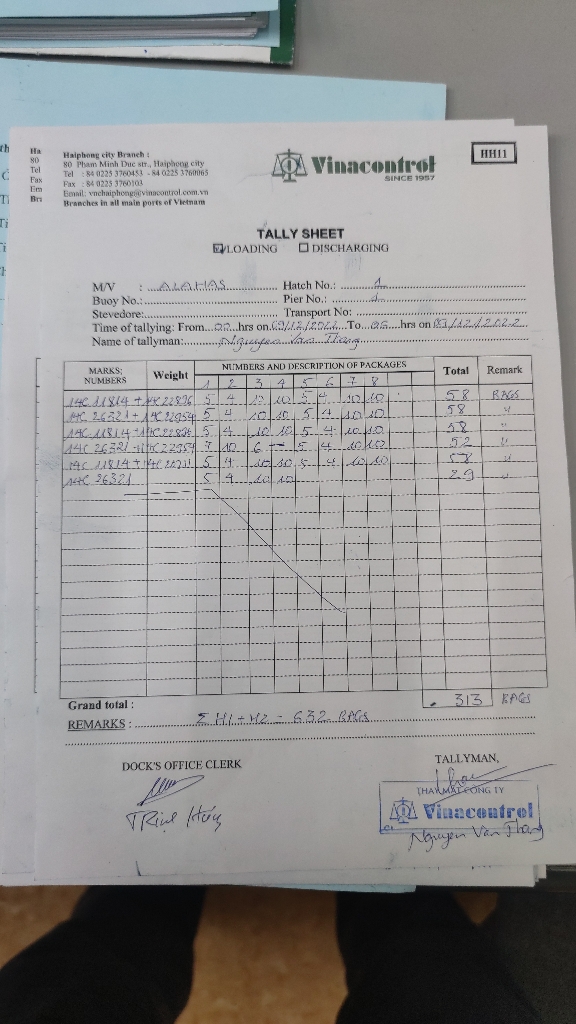 Haiphong city Branch :
80 Pham Minh Duc str., Haiphong city
Tel : 84 0225 3760453 - 84 0225 3760065
Fax : 84 0225 3760103
Email: vnchaiphong@vinacontrol.com.vn
Branches in all main ports of Vietnam
Vinacontrol
SINCE 1957
HH11
TALLY SHEET
LOADING DISCHARGING
M/V : ALAHAS Hatch No.: 1
Buoy No.: Pier No.: 1
Stevedore: Transport No:
Time of tallying: From hrs on To hrs on
Name of tallyman: Nguyen Van Thang
MARKS; NUMBERS Weight NUMBERS AND DESCRIPTION OF PACKAGES Total Remark
1 2 3 4 5 6 7 8
14C 11814 + 14C 22836 5 4 10 10 5 4 10 10 58 BAGS
14C 26321 + 14C 22954 5 4 10 10 5 4 10 10 58 "
14C 11814 + 14C 22836 5 4 10 10 5 4 10 10 58 "
14C 26321 + 14C 22954 7 10 6 5 4 10 10 52 "
14C 11814 + 5 4 10 10 5 4 10 10 58 "
14C 26321 5 4 10 10 29 "
Grand total : 313 BAGS
REMARKS : Σ H1 + H2 = 632 BAGS
DOCK'S OFFICE CLERK TALLYMAN,
Vinacontrol
Nguyen Van Thang